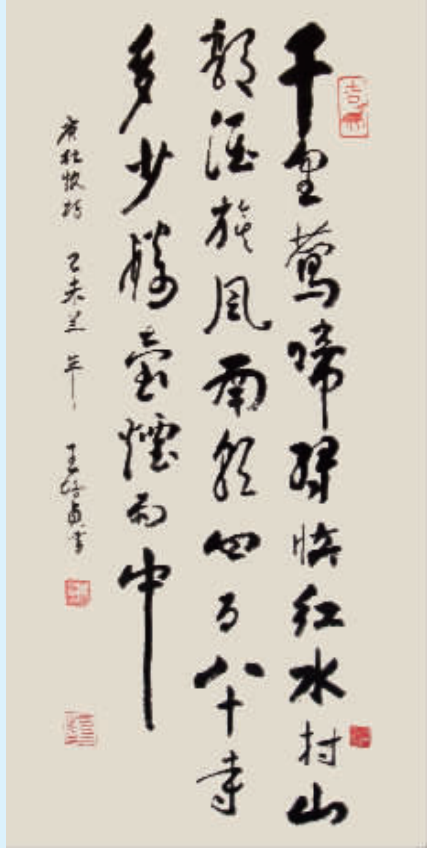 千里莺啼绿映红水村山
郭酒旗風南朝四百八十寺
多少楼臺煙雨中
唐杜牧诗 乙未羊年 王貞書